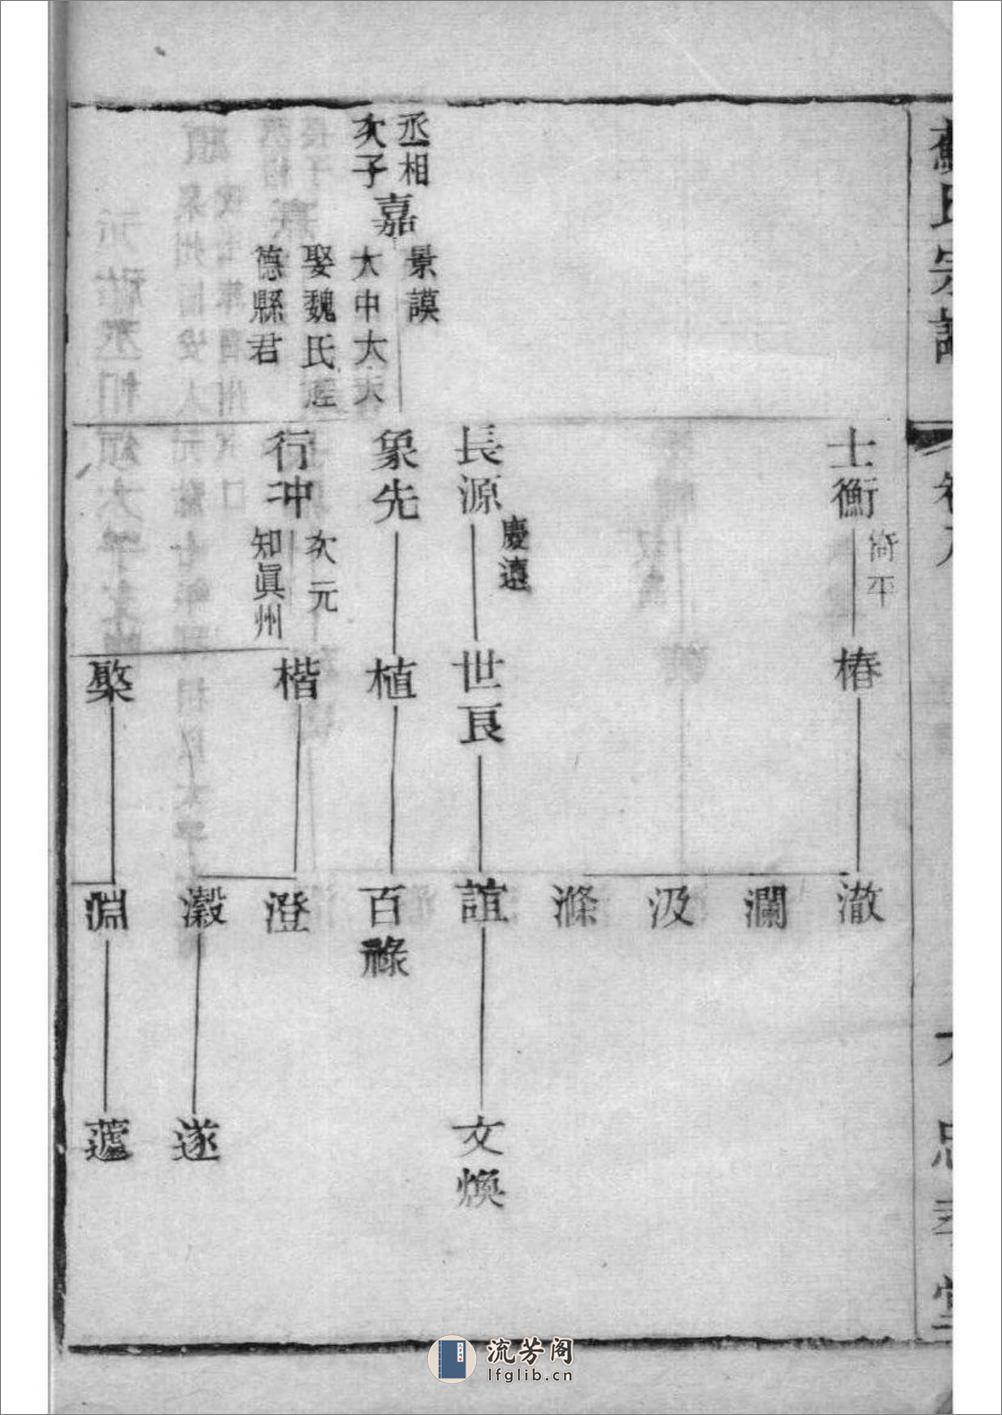 蘇氏宗譜
卷
忠孝堂
丞相
次子
嘉
景謨
大中大夫
娶魏氏旌
德縣君
士衡
椿
澈
瀾
汲
滌
長源
慶遠
世良
誼
文煥
象先
植
百祿
行冲
次元
知眞州
楷
澄
瀔
遂
檠
淵
蘧
流芳阁
lfglib.cn